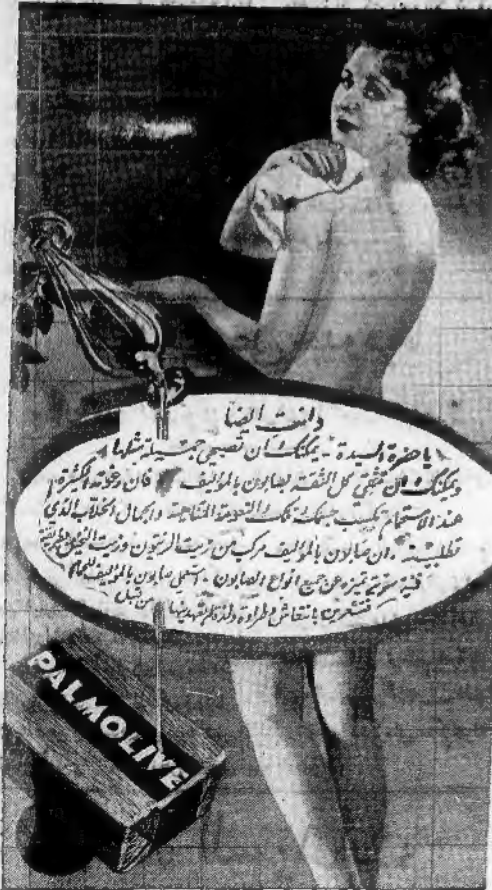 وانت ايضا
يا حضرة السيدة - يمكنك ان تصبحي جميلة مثلها
ويمكنك ان تثقي كل الثقة بصابون بالموليف فان رغوته الكثيرة
عند الاستحمام تكسب جسمك تلك النعومة والجمال الخلاب الذي
تطلبينه وان صابون بالموليف مركب من زيت الزيتون وزيت النخيل بطريقة
فنية سرية تميزه عن جميع انواع الصابون - استعملي صابون بالموليف للحمام
فتشعرين بانتعاش وطراوة ولذة لم تشهديها من قبل
PALMOLIVE